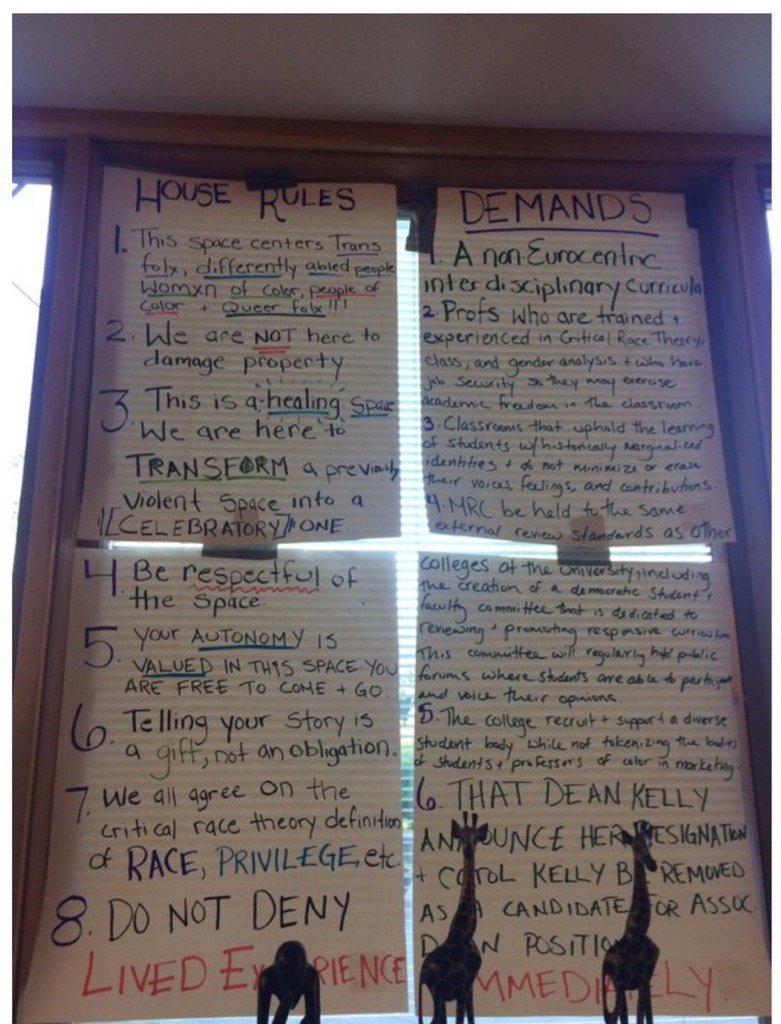 HOUSE RULES
1. This space centers Trans
folx, differently abled people
Womxn of color, people of
color + Queer folx!!!
2. We are NOT here to
damage property
3. This is a healing space
We are here to
TRANSFORM a previously
violent space into a
CELEBRATORY ONE.
4. Be respectful of
the space.
5. YOUR AUTONOMY IS
VALUED IN THIS SPACE YOU
ARE FREE TO COME + GO.
6. Telling your story is
a gift, not an obligation.
7. We all agree on the
critical race theory definition
of RACE, PRIVILEGE, etc.
8. DO NOT DENY
LIVED EXPERIENCE
DEMANDS
1. A non-Eurocentric
interdisciplinary curricula
2. Profs who are trained +
experienced in Critical Race Theory,
class, and gender analysis + who have
job security so they may exercise
academic freedom in the classroom.
3. Classrooms that uphold the learning
of students w/ historically marginalized
identities + do not minimize or erase
their voices, feelings, and contributions.
4. MRC be held to the same
external review standards as other
colleges at the University, including
the creation of a democratic student +
faculty committee that is dedicated to
reviewing + promoting responsive curriculum
This committee will regularly hold public
forums where students are able to participate
and voice their opinions.
5. The college recruit + support a diverse
student body while not tokenizing the bodies
of students + professors of color in marketing.
6. THAT DEAN KELLY
ANNOUNCE HER RESIGNATION
+ COROL KELLY BE REMOVED
AS A CANDIDATE FOR ASSOC.
DEAN POSITION
IMMEDIATELY.